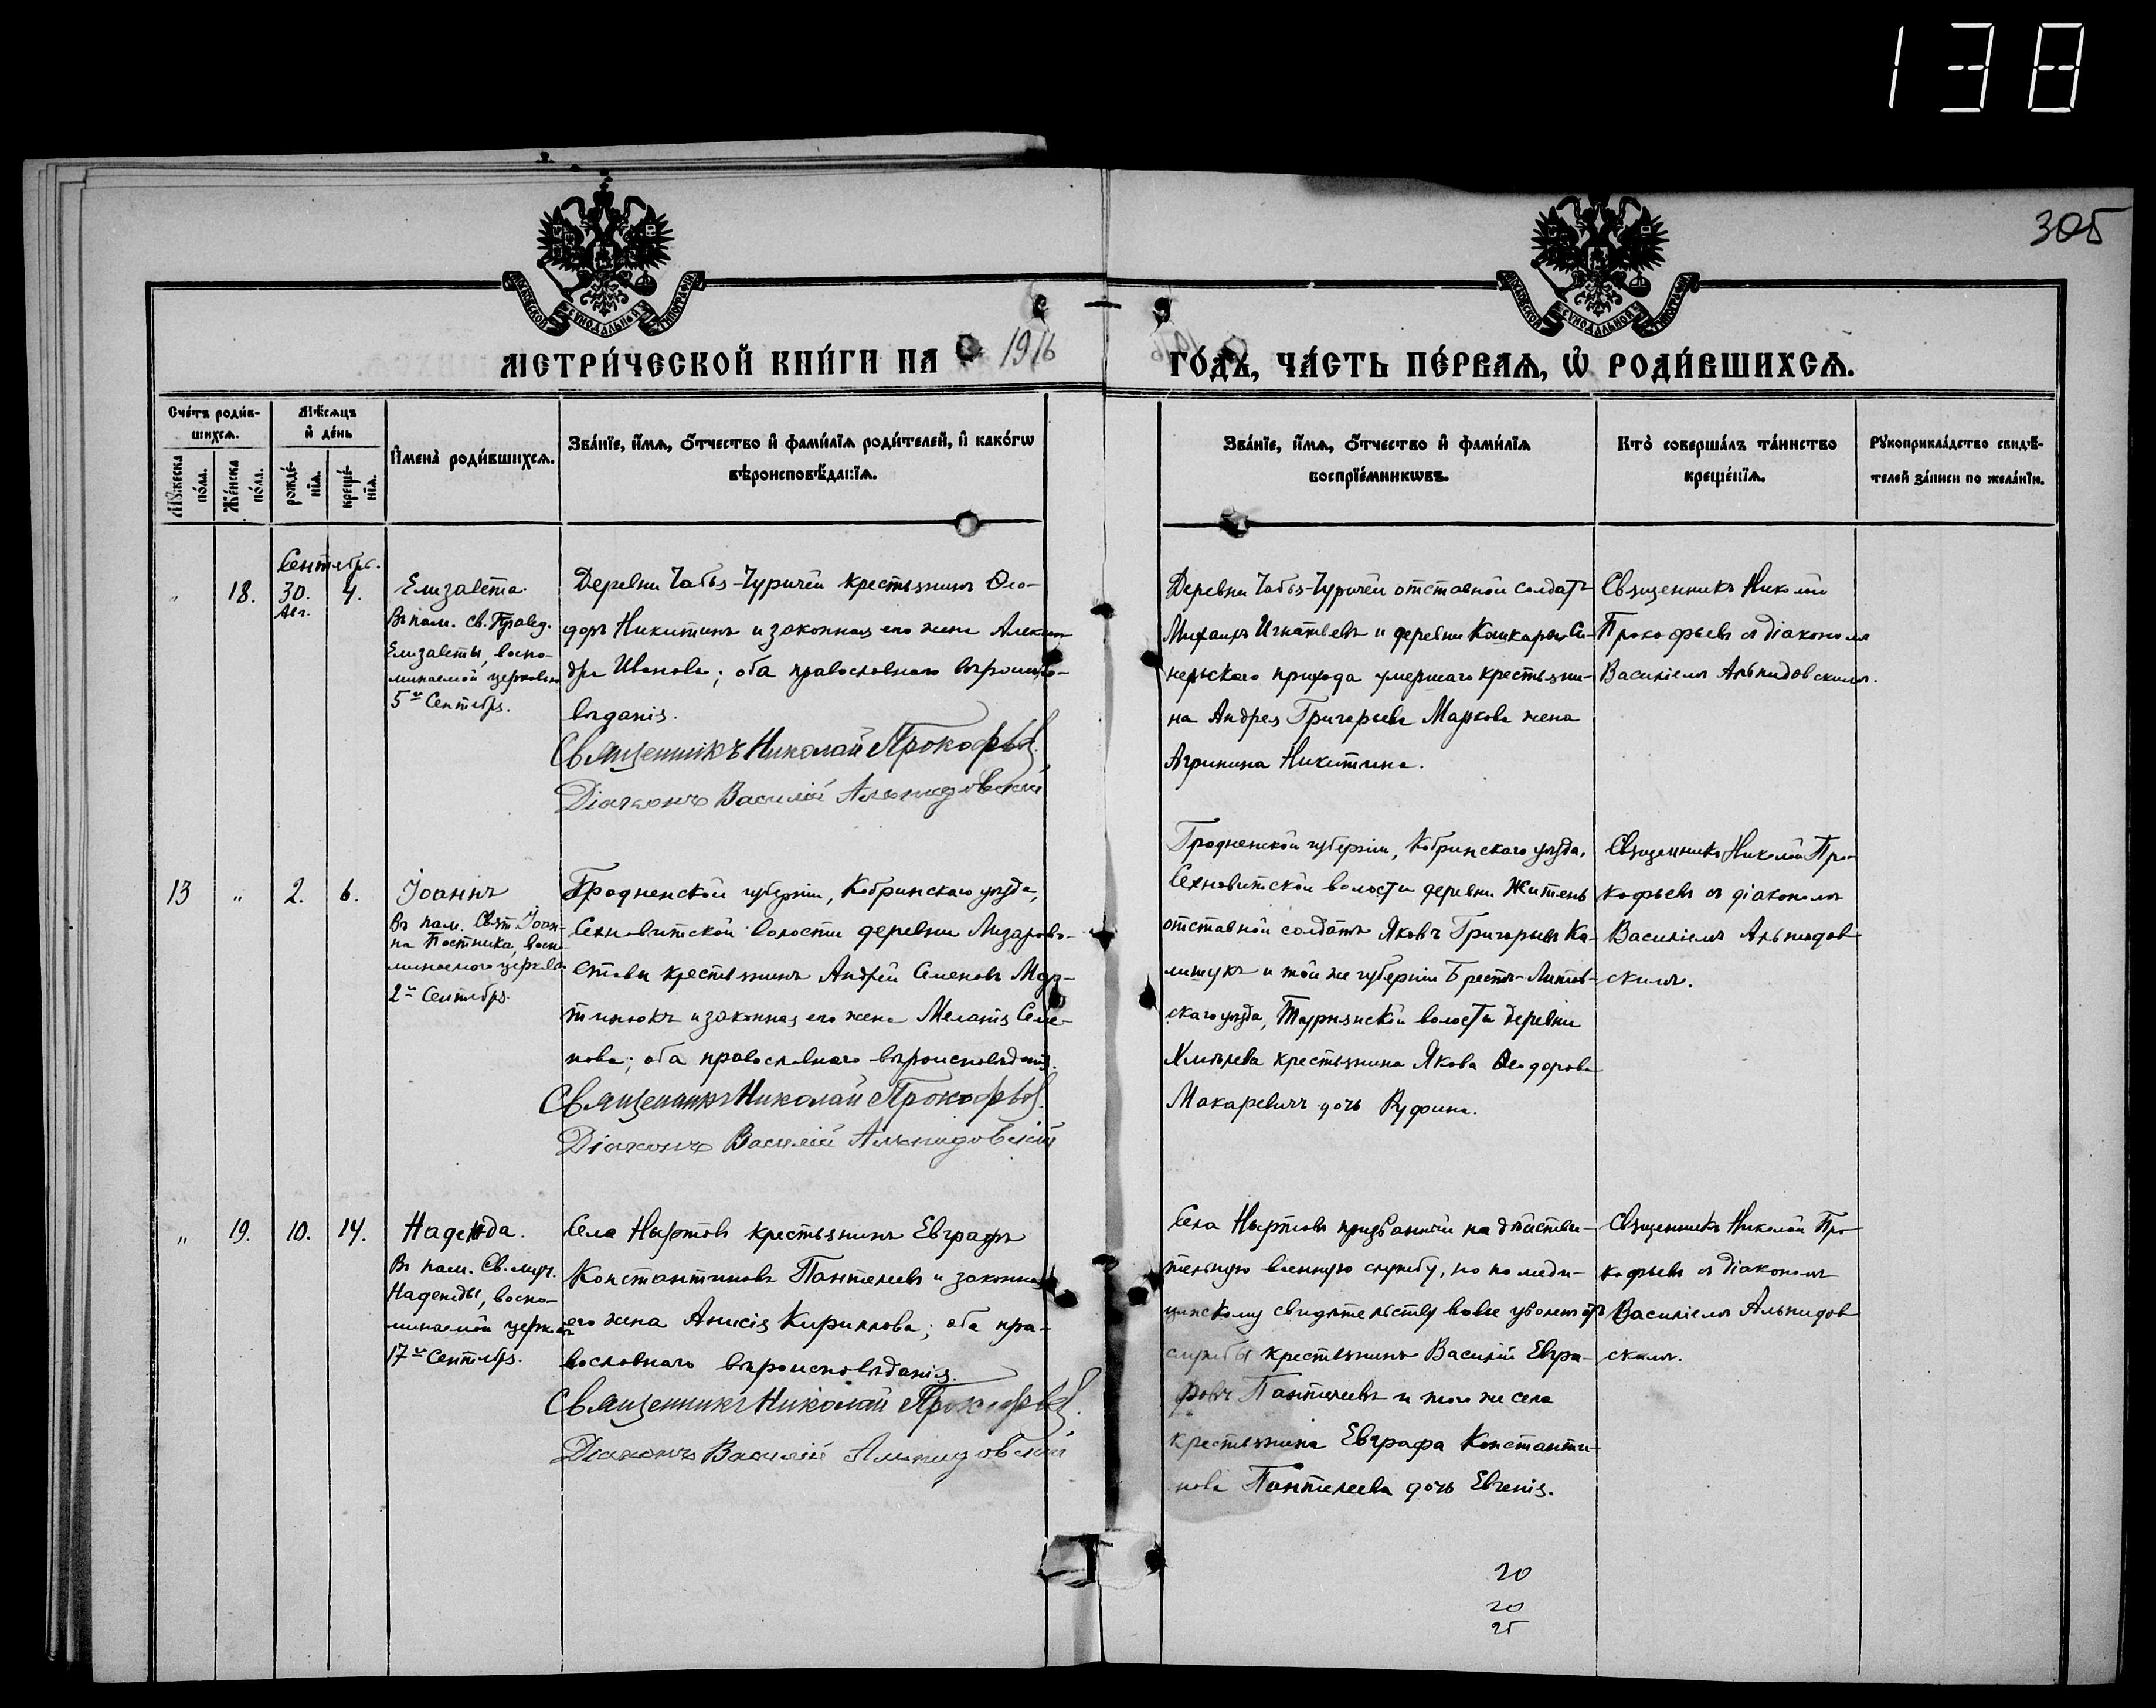 138
305
МОСКОВСКОЙ СУНОДАЛЬНОЙ ТИПОГРАФІИ
МОСКОВСКОЙ СУНОДАЛЬНОЙ ТИПОГРАФІИ
МЕТРИ́ЧЕСКОЙ КНИ́ГИ НА 1916
ГО́ДЪ, ЧА́СТЬ ПЕ́РВАѦ, Ѡ҆ РОДИ́ВШИХСѦ.
Сче́тъ роди́в-
шихсѧ.
Мꙋ́жеска
по́ла.
Же́нска
по́ла.
Мѣ́сѧцъ
и҆ де́нь
рожде́-
нїѧ.
креще́-
нїѧ.
И҆мена̀ роди́вшихсѧ.
Зва́нїе, и҆́мѧ, ѻ҆́тчество и҆ фами́лїѧ роди́телей, и҆ како́гѡ
вѣроисповѣ́данїѧ.
Зва́нїе, и҆́мѧ, ѻ҆́тчество и҆ фами́лїѧ
воспрїе́мникѡвъ.
Кто̀ соверша́лъ та́инство
креще́нїѧ.
Рꙋкоприкла́дство свидѣ́-
телей за́писи по жела́нїю.
Сентябрь.
" 18. 30. 4.
Авг.
Елизавета.
Въ пам. св. Правед.
Елизаветы, воспо-
минаемой церковью
5го Сентября.
Деревни Чабья-Чуричей крестьянинъ Ѳео-
доръ Никитинъ и законная его жена Алексан
дра Иванова; оба православнаго вѣроиспо-
вѣданія.
Священникъ Николай Прокофьев.
Діаконъ Василій Альпидовскій
Деревни Чабья-Чуричей отставной солдатъ
Михаилъ Игнатьевъ и деревни Кошкарь Си-
нерьскаго прихода умершаго крестьяни-
на Андрея Григорьева Маркова жена
Агрипина Никитина.
Священникъ Николай
Прокофьевъ съ діакономъ
Василіемъ Альпидовскимъ.
13 " 2. 6.
Іоаннъ
Въ пам. Свят. Іоан-
на Постника, воспо
минаемого церковью
2го Сентября.
Гродненской губерніи, Кобринскаго уѣзда,
Сехновитской волости деревни Лизарово-
Ставы крестьянинъ Андрей Семеновъ Мар-
тинюкъ и законная его жена Меланія Семе-
нова; оба православнаго вѣроисповѣданія.
Священникъ Николай Прокофьев.
Діаконъ Василій Альпидовскій
Гродненской губерніи, Кобринскаго уѣзда,
Сехновитской волости деревни Житень
отставной солдатъ Яковъ Григорьевъ Ка-
лишукъ и той же губерніи Брестъ-Литов-
скаго уѣзда, волости деревни
Хмѣлева крестьянина Якова Ѳеодорова
Макаревичъ дочь Руфина.
Священникъ Николай Про-
кофьевъ съ діакономъ
Василіемъ Альпидов
скимъ.
" 19. 10. 14.
Надежда.
Въ пам. Св. муч.
Надежды, воспо-
минаемой церковью
17го Сентября.
Села Нырговъ крестьянинъ Евграфъ
Константиновъ Пантелеевъ и законная
его жена Анисія Кириллова; оба пра-
вославнаго вѣроисповѣданія.
Священникъ Николай Прокофьев.
Діаконъ Василій Альпидовскій
Села Нырговъ призванный на дѣйстви-
тельную военную службу, но по меди-
цинскому свидѣтельству вовсе уволенъ отъ
службы крестьянинъ Василій Евгра-
фовъ Пантелеевъ и того же села
крестьянина Евграфа Константи-
нова Пантелеева дочь Евгенія.
Священникъ Николай Про
кофьевъ съ діакономъ
Василіемъ Альпидов
скимъ.
20
20
25